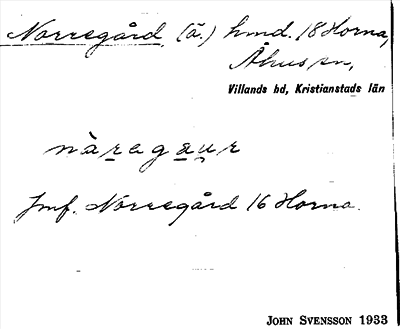 Norregård, (ä.) hmd. 18 Horna,
Åhus sn,
Villands hd, Kristianstads län
nàregau̯r
Jmf. Norregård 16 Horna.
JOHN SVENSSON 1933